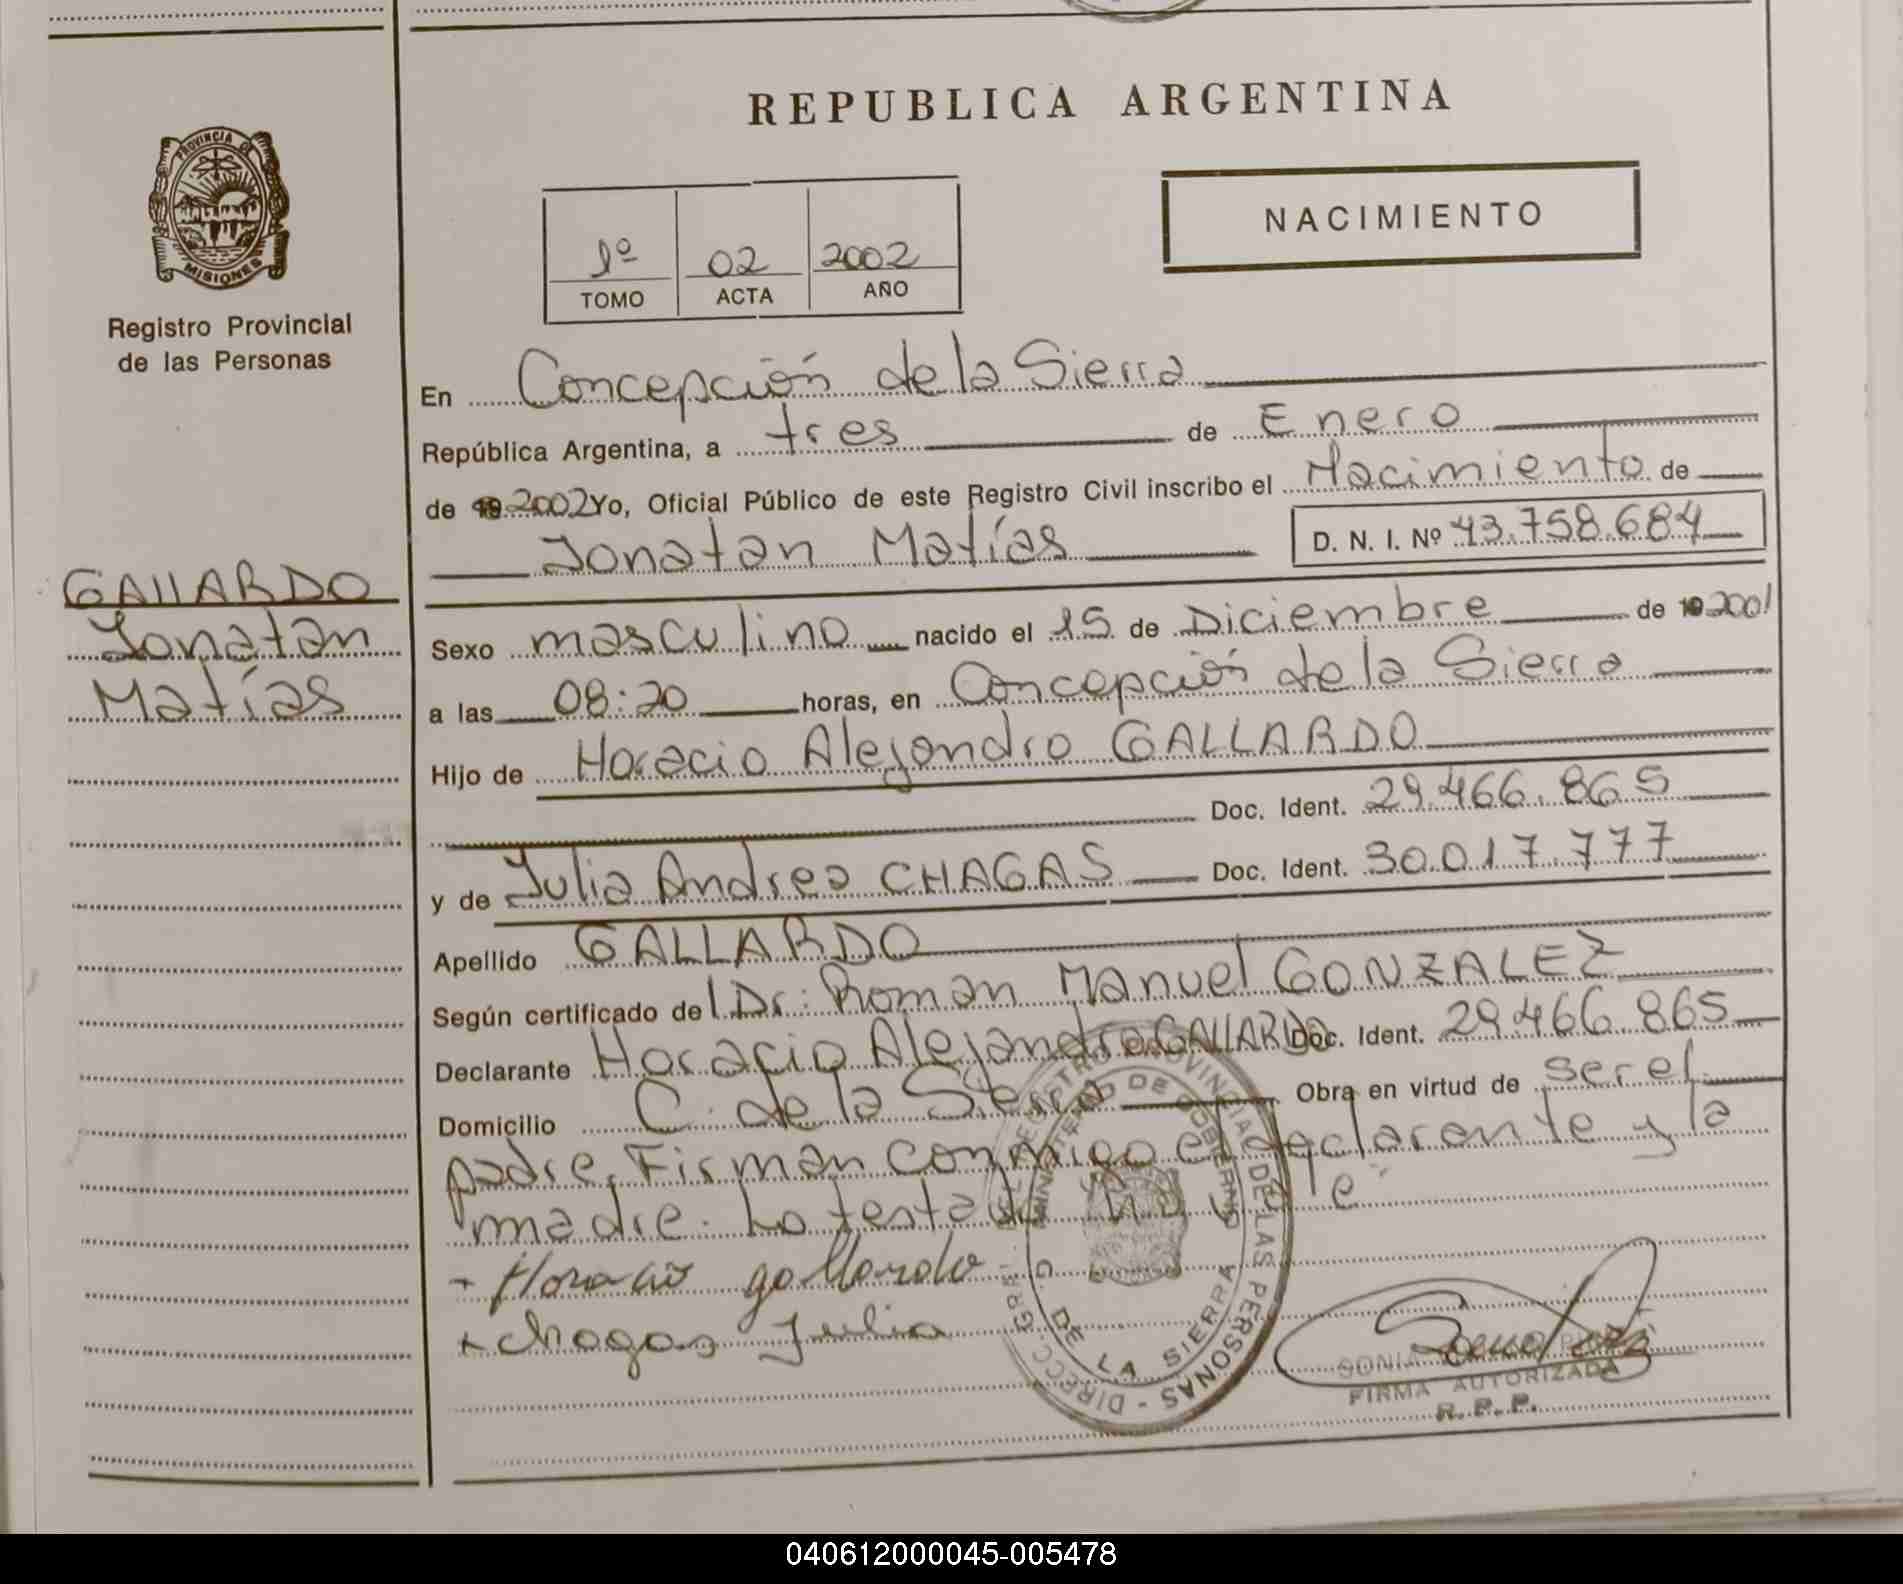 REPUBLICA ARGENTINA
PROVINCIA DE
MISIONES
Registro Provincial
de las Personas
1º 02 2002
TOMO ACTA AÑO
NACIMIENTO
En Concepción de la Sierra
República Argentina, a tres de Enero
de 19 2002 Yo, Oficial Público de este Registro Civil inscribo el Nacimiento de
Jonatan Matías D. N. I. Nº 43.758.684
GALLARDO
Jonatan
Matías
Sexo masculino nacido el 15 de Diciembre de 19 2001
a las 08:20 horas, en Concepción de la Sierra
Hijo de Horacio Alejandro GALLARDO
Doc. Ident. 29.466.865
y de Julia Andrea CHAGAS Doc. Ident. 30.017.777
Apellido GALLARDO
Según certificado del Dr: Roman Manuel GONZALEZ
Declarante Horacio Alejandro GALLARDO Doc. Ident. 29.466.865
Domicilio C. de la Sierra Obra en virtud de ser el
padre. Firman conmigo el declarante y la
madre. Lo testado no vale
+ Horacio gallardo
+ chagas Julia
REGISTRO PROVINCIAL DE LAS PERSONAS - DIRECC. GRAL.
MINISTERIO DE GOBIERNO
C. DE LA SIERRA
SONIA
FIRMA AUTORIZADA
R. P. P.
040612000045-005478